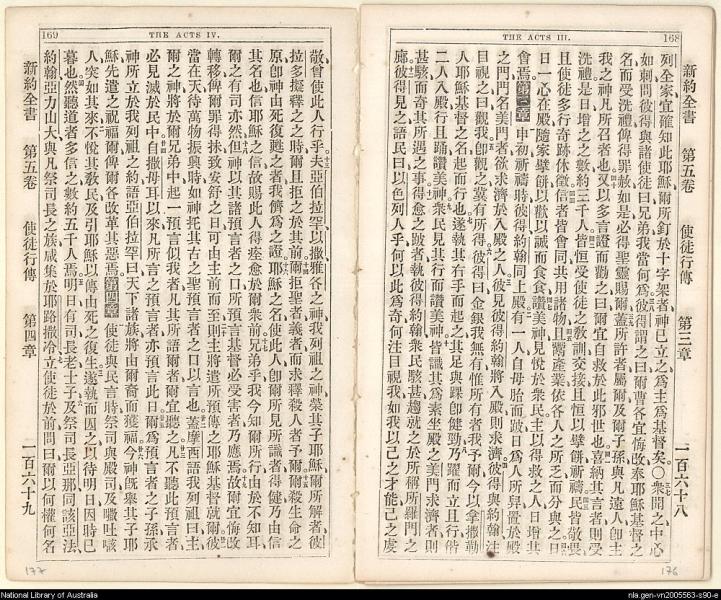 THE ACTS III.
168
新約全書 第五卷 使徒行傳 第三章 一百六十八
列全家宜確知此耶穌爾所釘於十字架者神已立之為主為基督矣○衆聞之中心
如刺問彼得與諸使徒曰兄弟我當何為彼得謂之曰爾曹各宜悔改奉耶穌基督之
名而受洗禮俾得罪赦如是必得聖靈賜爾蓋所許者屬爾及爾子孫與凡遠人卽主
我之神凡所召者也又以多言證而勸之曰爾宜自救於此邪世也喜納其言者則受
洗禮是日增之之數約三千人皆恒受使徒之教訓交接且恒以擘餅祈禱民皆敬畏
且使徒多行奇跡休徵信者皆會同共用諸物且鬻產業依各人之所乏而分與之日
日一心在殿隨家擘餅以歡以誠而食食讚美神見悅於衆民主以得救之人日增其
會焉第三章申初祈禱時彼得約翰同上殿有一人自母胎而跛日為人所舁置於殿
之門門名美門者欲求濟於入殿之人彼見彼得約翰將入殿則求濟彼得與約翰注
目視之曰觀我卽觀之冀有所得彼得曰金銀我無有惟所有者我予爾今以拿撒勒
人耶穌基督之名起而行也遂執其右手而起之其足與踝卽健勁乃躍而立且行偕
二人入殿行且踊讚美神衆民見其行而讚美神皆識其為素坐殿之美門求濟者則
甚駭而奇其所遇之事得愈之跛者執彼得約翰衆民駭甚趨就之於所稱所羅門之
廊彼得見之語民曰以色列人乎何以此為奇何注目視我如我以己之才能己之虔
176
169
THE ACTS IV.
敬曾使此人行乎夫亞伯拉罕以撒雅各之神我列祖之神榮其子耶穌爾所解者彼
拉多擬釋之之時爾且拒之於其前爾拒聖者義者而求釋殺人者予爾爾殺生命之
原卽神由死復甦之者我儕為之證耶穌之名使此人卽爾所見所識者得健乃由信
其名也信耶穌之信故賜此人得痊愈於爾衆前兄弟乎我今知爾所行由於不知耳
爾之有司亦然但神以其諸預言者之口所預言基督必受害者乃應焉故爾宜悔改
轉移俾爾罪得抹致安舒之日可由主前而至則主將遣所預傳之耶穌基督就爾彼
當在天待萬物振興時如神托其古之聖預言者之口以言也蓋摩西語我列祖曰主
爾之神將於爾兄弟中起一預言似我者凡其所語爾者爾宜聽之凡不聽此預言者
必見滅於民中自撒母耳以來凡所言之預言者亦預言此日爾為預言者之子孫承
神所立於我列祖之約語亞伯拉罕曰天下諸族將由爾裔而獲福今神旣舉其子耶
穌先遣之祝福爾俾爾各改革其惡焉第四章使徒與民言時祭司與殿司及嚈吐咳
人突如其來不悅其敎民及引耶穌以傳由死之復生遂執而囚之以待明日因時已
暮也然聽道者多信之數約五千人焉明日有司長老士子及祭司長亞那同該亞法
約翰亞力山大與凡祭司長之族咸集於耶路撒冷立使徒於前問曰爾以何權何名
新約全書 第五卷 使徒行傳 第四章 一百六十九
177
National Library of Australia
nla.gen-vn2005563-s90-e